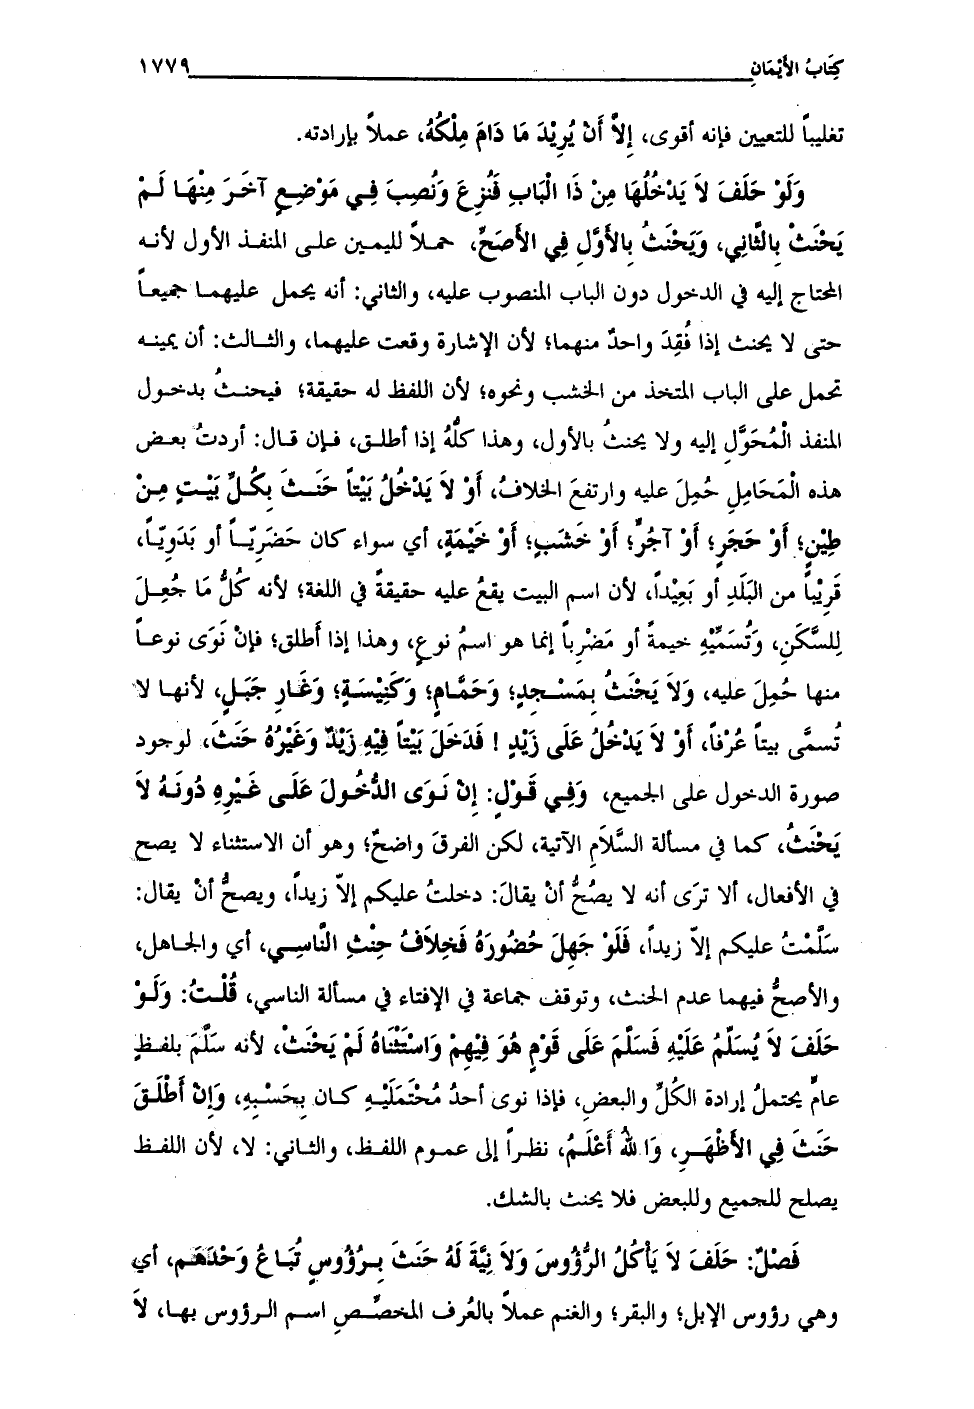 كِتَابُ الأَيْمَانِ ١٧٧٩
تغليباً للتعيين فإنه أقوى، إِلاَّ أَنْ يُرِيْدَ مَا دَامَ مِلْكُهُ، عملاً بإرادته.
وَلَوْ حَلَفَ لاَ يَدْخُلُهَا مِنْ ذَا الْبَابِ فَنُزِعَ وَنُصِبَ فِي مَوْضِعٍ آخَرَ مِنْهَا لَمْ
يَحْنَثْ بِالثَّانِي، وَيَحْنَثُ بِالأَوَّلِ فِي الأَصَحِّ، حملاً لليمين على المنفذ الأول لأنه
المحتاج إليه في الدخول دون الباب المنصوب عليه، والثاني: أنه يحمل عليهما جميعاً
حتى لا يحنث إذا فُقِدَ واحدٌ منهما؛ لأن الإشارة وقعت عليهما، والثالث: أن يمينه
تحمل على الباب المتخذ من الخشب ونحوه؛ لأن اللفظ له حقيقة؛ فيحنثُ بدخول
المنفذ الْمُحَوَّلِ إليه ولا يحنثُ بالأول، وهذا كلُّهُ إذا أطلق، فإن قال: أردتُ بعض
هذه الْمَحَامِلِ حُمِلَ عليه وارتفعَ الخلافُ، أَوْ لاَ يَدْخُلُ بَيْتاً حَنَثَ بِكُلِّ بَيْتٍ مِنْ
طِيْنٍ؛ أَوْ حَجَرٍ؛ أَوْ آجُرٍّ؛ أَوْ خَشَبٍ؛ أَوْ خَيْمَةٍ، أي سواء كان حَضَرِيّاً أو بَدَوِيّاً،
قَرِيْباً من البَلَدِ أو بَعِيْداً، لأن اسم البيت يقعُ عليه حقيقةً في اللغة؛ لأنه كُلُّ مَا جُعِلَ
لِلسَّكَنِ، وَتُسَمِّيْهِ خيمةً أو مَضْرِباً إنما هو اسمُ نوعٍ، وهذا إذا أَطلق؛ فإنْ نَوَى نوعاً
منها حُمِلَ عليه، وَلاَ يَحْنَثُ بِمَسْجِدٍ؛ وَحَمَّامٍ؛ وَكَنِيْسَةٍ؛ وَغَارِ جَبَلٍ، لأنها لا
تُسمَّى بيتاً عُرْفاً، أَوْ لاَ يَدْخُلُ عَلَى زَيْدٍ ! فَدَخَلَ بَيْتاً فِيْهِ زَيْدٌ وَغَيْرُهُ حَنَثَ، لوجود
صورة الدخول على الجميع، وَفِي قَوْلٍ: إِنْ نَوَى الدُّخُولَ عَلَى غَيْرِهِ دُونَهُ لاَ
يَحْنَثُ، كما في مسألة السَّلاَمِ الآتية، لكن الفرقَ واضحٌ؛ وهو أن الاستثناء لا يصح
في الأفعال، ألا ترَى أنه لا يصُحُّ أنْ يقالَ: دخلتُ عليكم إلاّ زيداً، ويصحُّ أنْ يقال:
سَلَّمْتُ عليكم إلاّ زيداً، فَلَوْ جَهِلَ حُضُورَهُ فَخِلاَفُ حِنْثِ النَّاسِي، أي والجاهل،
والأصحُّ فيهما عدم الحنث، وتوقف جماعة في الإفتاء في مسألة الناسي، قُلْتُ: وَلَوْ
حَلَفَ لاَ يُسَلِّمُ عَلَيْهِ فَسَلَّمَ عَلَى قَوْمٍ هُوَ فِيْهِمْ وَاسْتَثْنَاهُ لَمْ يَحْنَثْ، لأنه سَلَّمَ بلفظٍ
عامٍّ يحتملُ إرادة الكُلِّ والبعضِ، فإذا نوى أحدُ مُحْتَمَلَيْهِ كان بِحَسْبِهِ، وَإِنْ أَطْلَقَ
حَنَثَ فِي الأَظْهَرِ، وَاللهُ أَعْلَمُ، نظراً إلى عموم اللفظ، والثاني: لا، لأن اللفظ
يصلح للجميع وللبعض فلا يحنث بالشك.
فَصْلٌ: حَلَفَ لاَ يَأْكُلُ الرُّؤُوسَ وَلاَ نِيَّةَ لَهُ حَنَثَ بِرُؤُوسٍ تُبَاعُ وَحْدَهَم، أي
وهي رؤوس الإبل؛ والبقر؛ والغنم عملاً بالعُرف المخصِّصِ اسم الرؤوس بها، لاَ